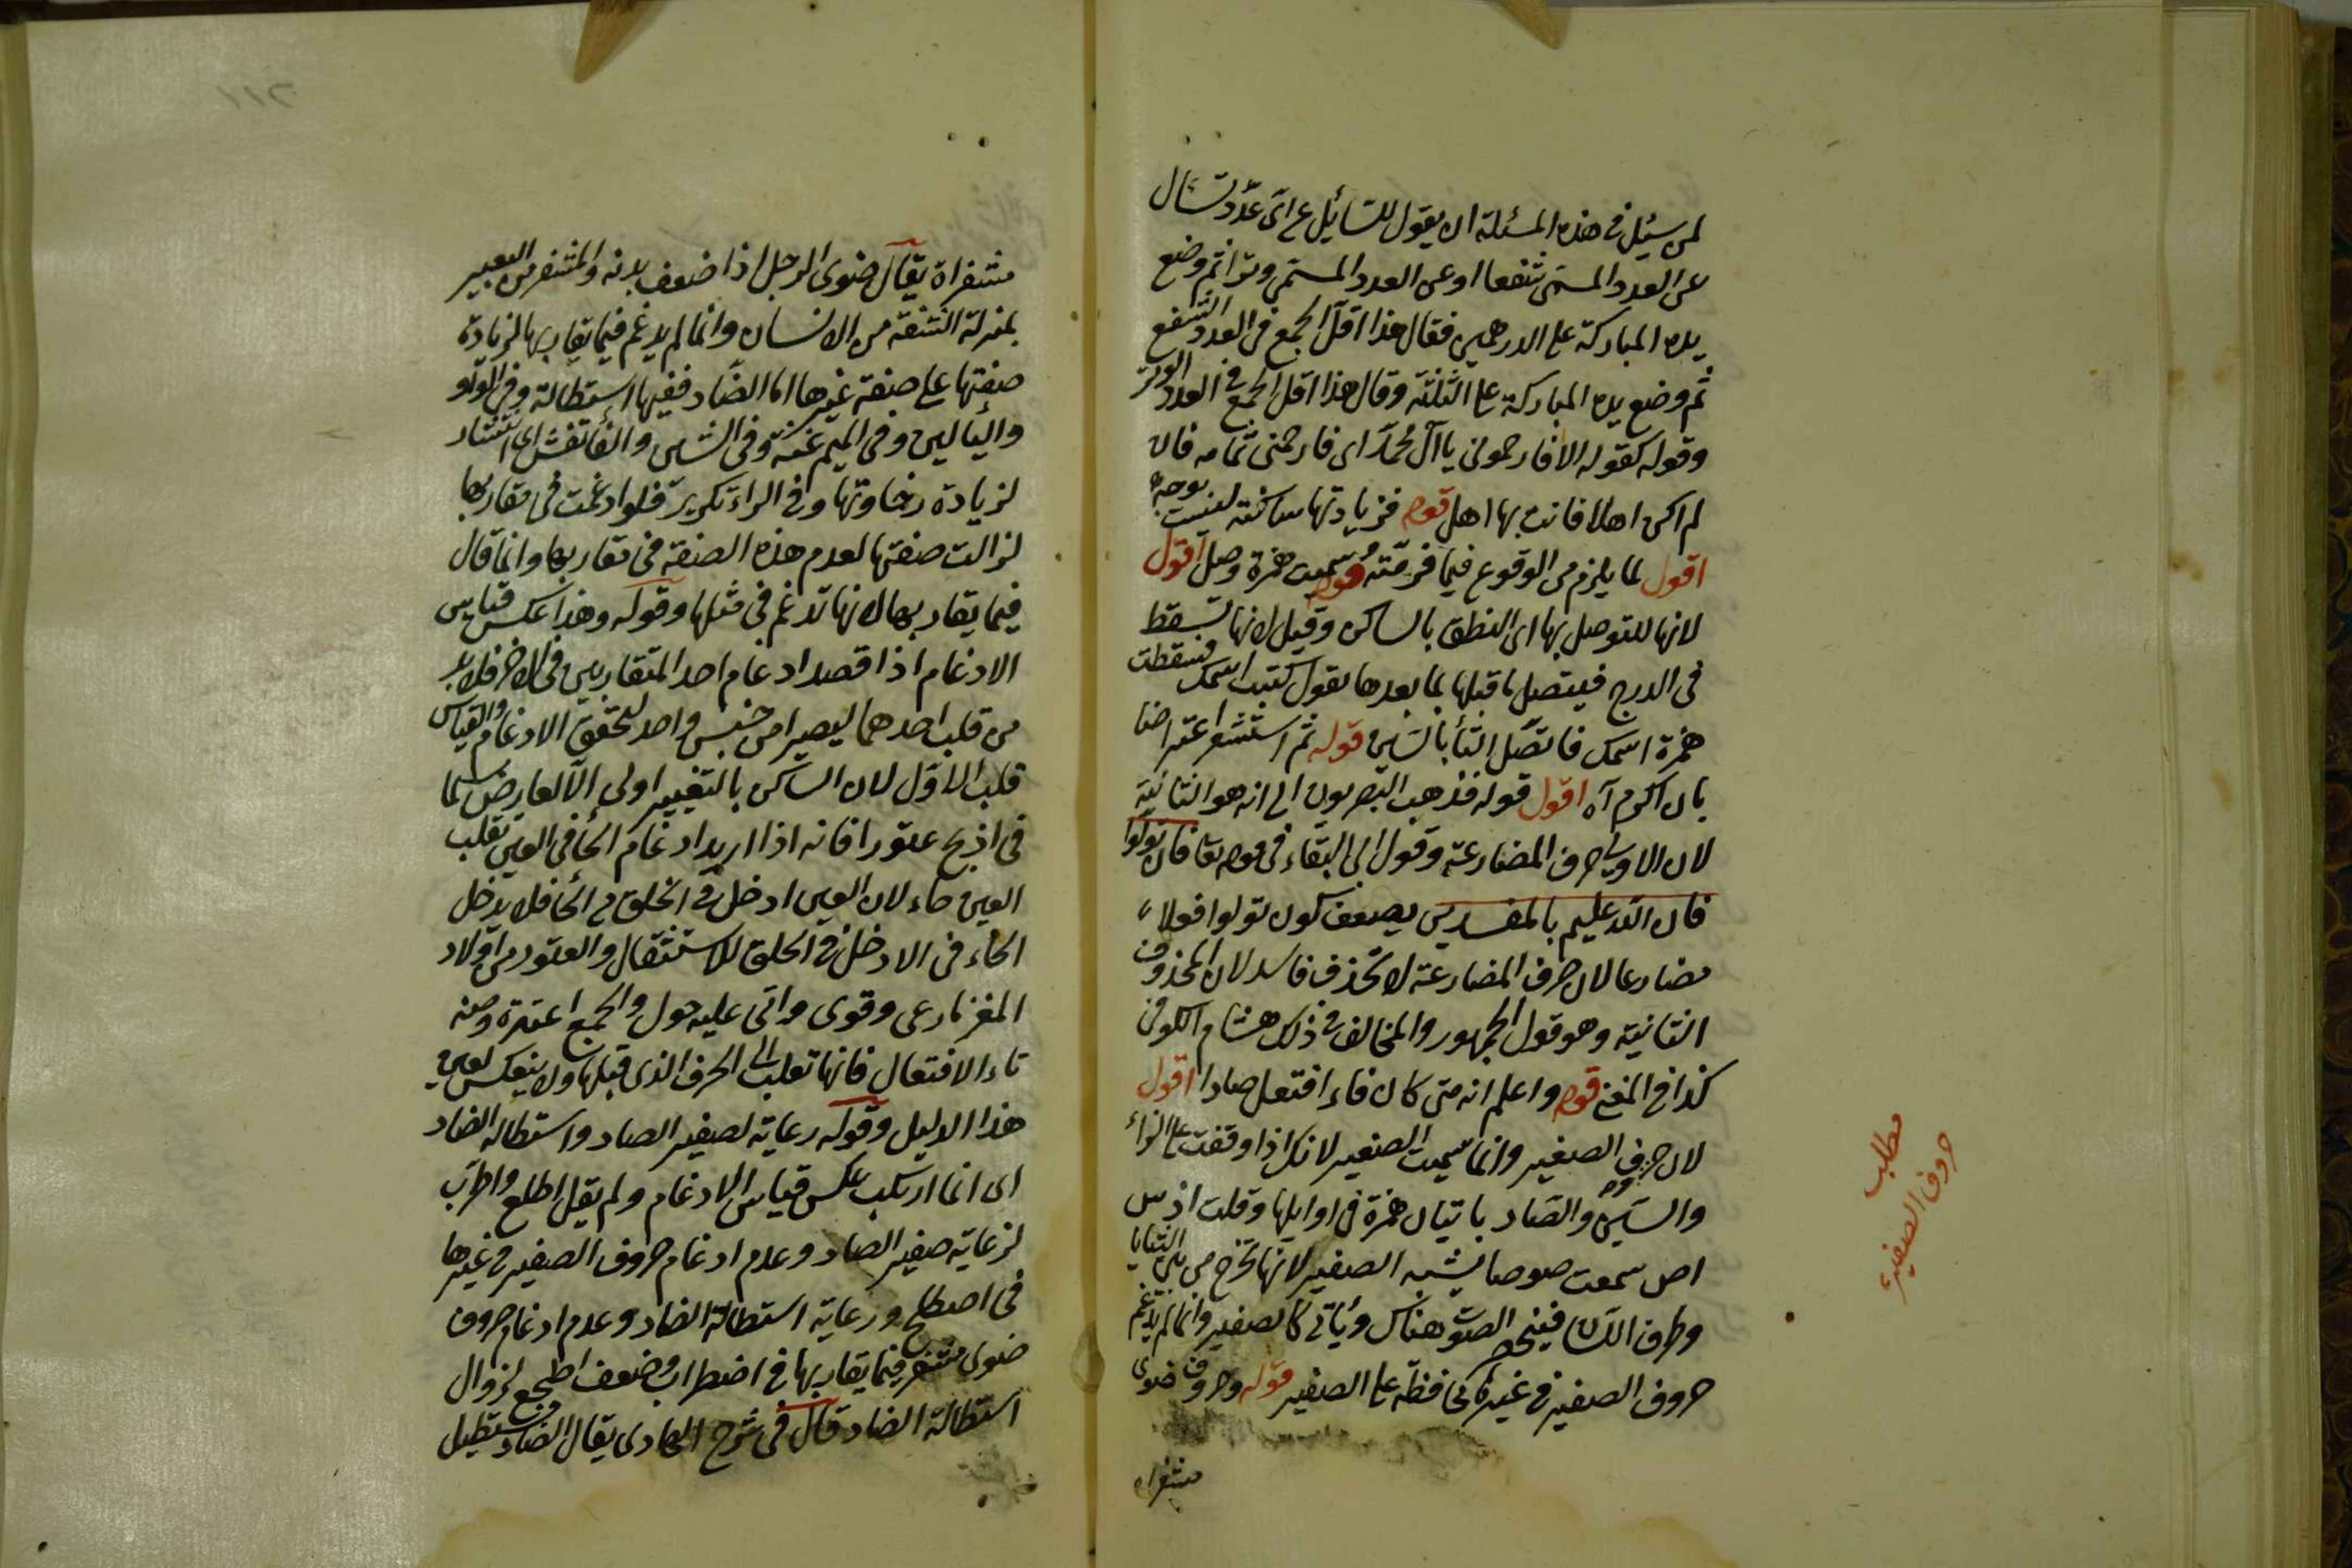 لمن سئل فى هذه المسئلة ان يقول للسائل عن اى عدد تسال
عن العدد المسمى شفعا او عن العدد المسمى وترا ثم وضع
يده المباركة على الدرهمين فقال هذا اقل الجمع فى العدد الشفع
ثم وضع يده المباركة على الثلثة وقال هذا اقل الجمع فى العدد الوتر
وقوله كقوله الا فارحمونى يا آل محمد اى فارحمنى تمامه فان
لم اكن اهلا فانت بها اهل قوله فزيادتها ساكنة ليست بوجه
اقول لما يلزم من الوقوع فيما فررته قوله سميت همزة وصل اقول
لانها للتوصل بها اى النطق بالساكن وقيل لانها تسقط
فى الدرج فيتصل ما قبلها بما بعدها تقول كتبت اسمك فسقطت
همزة اسمك فاتصل التاء بالسين قوله ثم استشعر اعتراضا
بان اكرم آه اقول قوله فذهب البصريون الى انه هو الثانية
لان الاولى حرف المضارعة وقول ابى البقاء فى قوله تعا فان تولوا
فان الله عليم بالمفسدين يضعف كون تولوا فعلا
مضارعا لان حرف المضارعة لا تحذف فاسد لان المحذوف
الثانية وهو قول الجمهور والمخالف فى ذلك هشام الكوفى
كذا فى المغنى قوله واعلم انه متى كان فاء افتعل صادا اقول
لان حروف الصفير وانما سميت الصفير لانك اذا وقفت على الزاء
والسين والصاد باتيان همزة فى اوايلها وقلت از س
اص سمعت صوصا يشبه الصفير لانها تخرج من بين الثنايا
وطرف اللسان فينحصر الصوت هناك وياتى كالصفير وانما لم يدغم
حروف الصفير فى غيرها محافظة على الصفير قوله وحروف ضوى
مشفراه
مطلب
حروف الصفير
مشفراه يقال ضوى الرجل اذا ضعف بدنه والمشفر من البعير
بمنزلة الشفة من الانسان وانما لم يدغم فيما يقاربها لزيادة
صفتها على صفة غيرها اما الضاد ففيها استطالة وفى الواو
والياء لين وفى الميم غنة وفى الشين والفاء تفش اى انتشار
لزيادة رخاوتها وفى الراء تكرير فلو ادغمت فى مقاربها
لزالت صفتها لعدم هذه الصفة فى مقاربها وانما قال
فيما يقاربها لانها تدغم فى مثلها وقوله وهذا عكس قياس
الادغام اذا قصد ادغام احد المتقاربين فى الاخر فلا بد
من قلب احدهما ليصيرا من جنس واحد لتحقق الادغام والقياس
قلب الاول لان الساكن بالتغيير اولى الا لعارض كما
فى اذبح عتودا فانه اذا اريد ادغام الحاء فى العين تقلب
العين حاء لان العين ادخل فى الحلق من الحاء فلا يدخل
الحاء فى الادخل فى الحلق للاستثقال والعتود من اولاد
المعز ما رعى وقوى واتى عليه حول والجمع اعتدة ومنه
تاء الافتعال فانها تقلب الى الحرف الذى قبلها ولا ينعكس لعين
هذا الدليل وقوله رعاية لصفير الصاد واستطالة الضاد
اى انما ارتكب عكس قياس الادغام ولم يقل اطلح واطرب
لرعاية صفير الصاد وعدم ادغام حروف الصفير فى غيرها
فى اصطلح ورعاية استطالة الضاد وعدم ادغام حروف
ضوى مشفر فيما يقاربها فى اضطراب وضعف اطجع لزوال
استطالة الضاد قال فى شرح الهادى يقال الضاد مستطيل